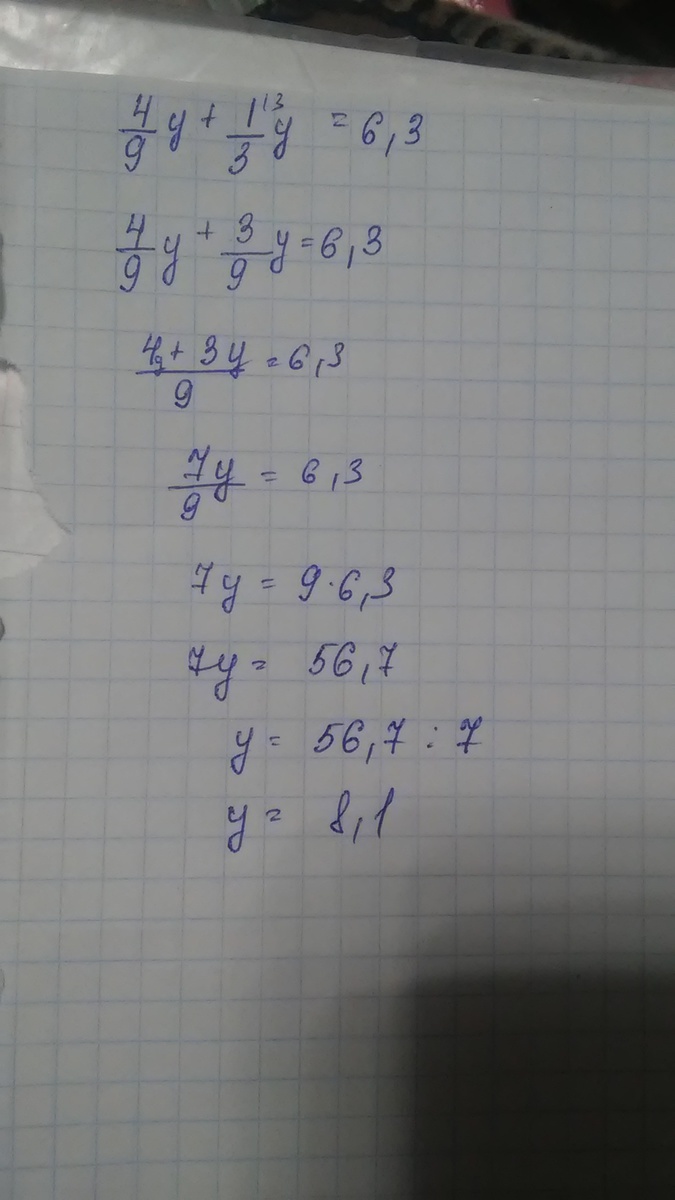 4/9 y + 1/3 ^(3 y = 6,3
4/9 y + 3/9 y = 6,3
4y + 3y / 9 = 6,3
7y / 9 = 6,3
7y = 9 · 6,3
7y = 56,7
y = 56,7 : 7
y = 8,1